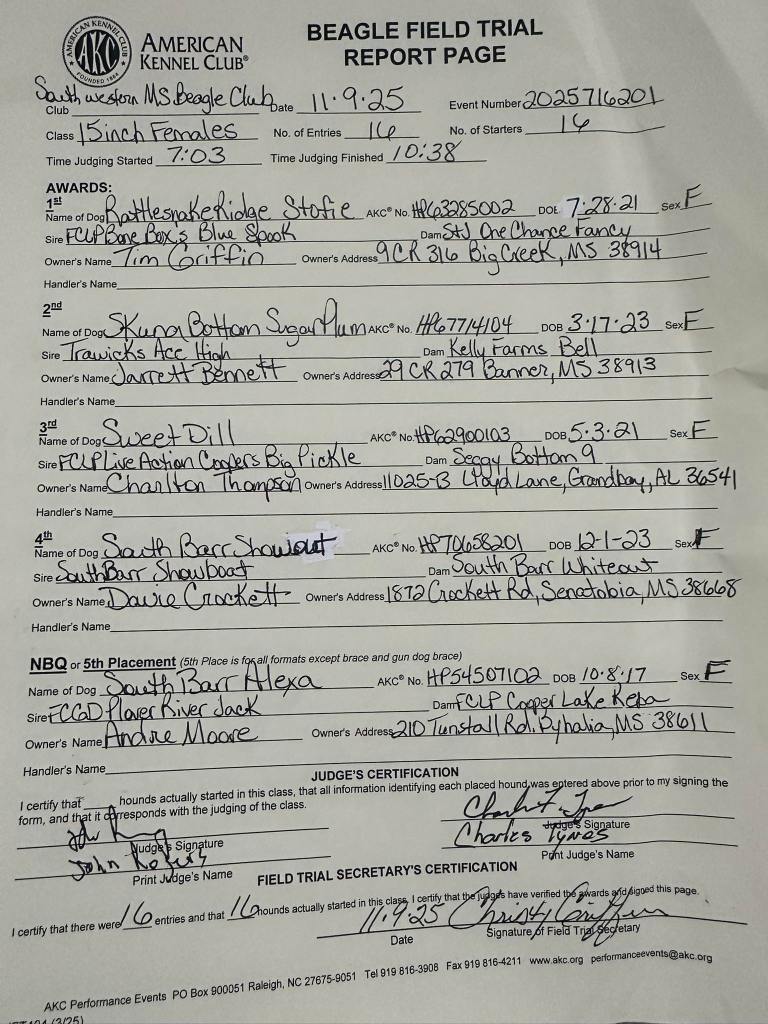 AMERICAN KENNEL CLUB
AKC
FOUNDED 1884
AMERICAN KENNEL CLUB®
BEAGLE FIELD TRIAL
REPORT PAGE
Club Southwestern MS. Beagle Club Date 11·9·25 Event Number 2025716201
Class 15inch Females No. of Entries 16 No. of Starters 16
Time Judging Started 7:03 Time Judging Finished 10:38
AWARDS:
1st
Name of Dog Rattlesnake Ridge Stofie AKC® No. HP63285002 DOB 7·28·21 Sex F
Sire FCLP Bone Box's Blue Spook Dam St J One Chance Fancy
Owner's Name Tim Griffin Owner's Address 9 CR 316 Big Creek, MS 38914
Handler's Name
2nd
Name of Dog Skuna Bottom Sugar Plum AKC® No. HP67714104 DOB 3·17·23 Sex F
Sire Trawicks Acc High Dam Kelly Farms Bell
Owner's Name Jarrett Bennett Owner's Address 29 CR 279 Banner, MS 38913
Handler's Name
3rd
Name of Dog Sweet Dill AKC® No. HP62900103 DOB 5·3·21 Sex F
Sire FCLP Live Action Coopers Big Pickle Dam Seggy Bottom 9
Owner's Name Charlton Thompson Owner's Address 11025-B Lloyd Lane, Grandbay, AL 36541
Handler's Name
4th
Name of Dog South Barr Showout AKC® No. HP70658201 DOB 12-1-23 Sex F
Sire South Barr Showboat Dam South Barr Whiteout
Owner's Name Davie Crockett Owner's Address 1872 Crockett Rd, Senatobia, MS 38668
Handler's Name
NBQ or 5th Placement (5th Place is for all formats except brace and gun dog brace)
Name of Dog South Barr Alexa AKC® No. HP54507102 DOB 10·8·17 Sex F
Sire FCGD Plaver River Jack Dam FCLP Cooper Lake Reba
Owner's Name Andre Moore Owner's Address 210 Tunstall Rd. Byhalia, MS 38611
Handler's Name
JUDGE'S CERTIFICATION
I certify that ____ hounds actually started in this class, that all information identifying each placed hound was entered above prior to my signing the
form, and that it corresponds with the judging of the class.
Judge's Signature Judge's Signature
John Rogers Charles Tynes
Print Judge's Name Print Judge's Name
FIELD TRIAL SECRETARY'S CERTIFICATION
I certify that there were 16 entries and that 16 hounds actually started in this class, I certify that the judges have verified the awards and signed this page.
11.9.25 Christy Griffin
Date Signature of Field Trial Secretary
AKC Performance Events PO Box 900051 Raleigh, NC 27675-9051 Tel 919 816-3908 Fax 919 816-4211 www.akc.org performanceevents@akc.org
(3/25)